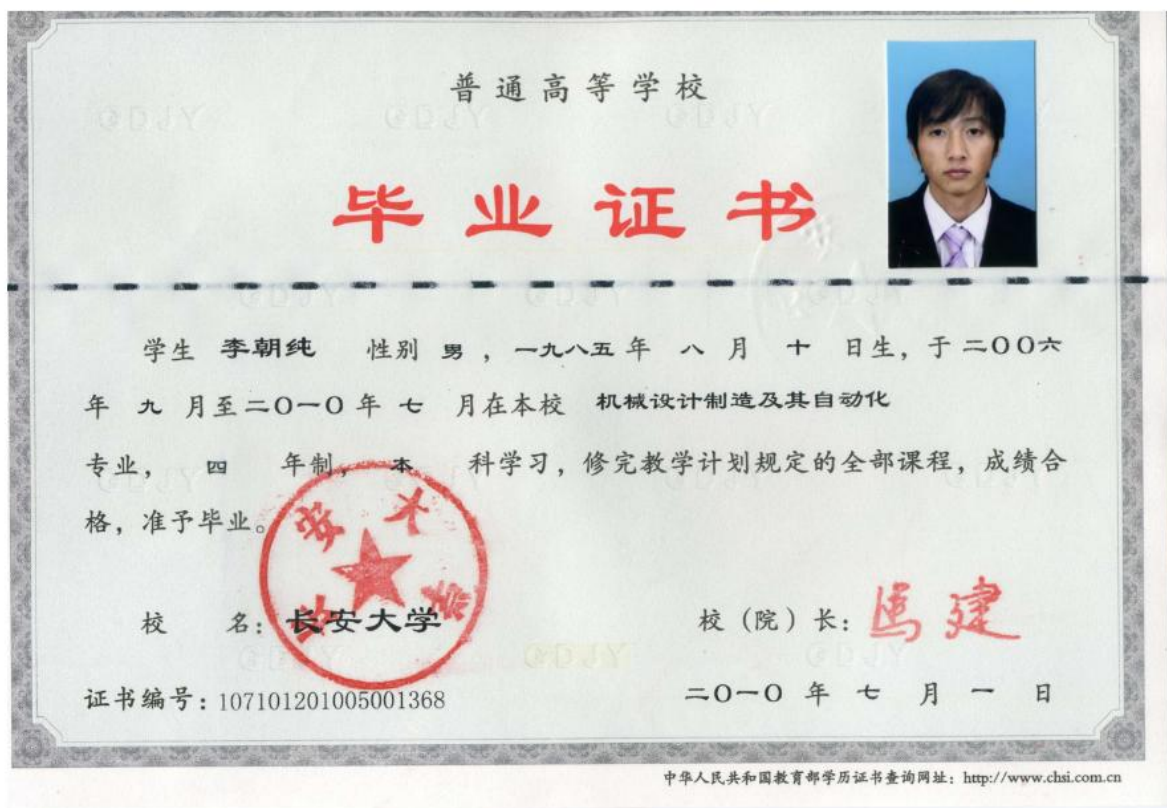 普通高等学校
毕业证书
学生 李朝纯 性别 男 ，一九八五 年 八 月 十 日生，于 二〇〇六
年 九 月至 二〇一〇 年 七 月在本校 机械设计制造及其自动化
专业， 四 年制， 本 科学习，修完教学计划规定的全部课程，成绩合
格，准予毕业。
长安大学
校 名：长安大学
校（院）长：马建
证书编号：107101201005001368
二〇一〇 年 七 月 一 日
中华人民共和国教育部学历证书查询网址：http://www.chsi.com.cn